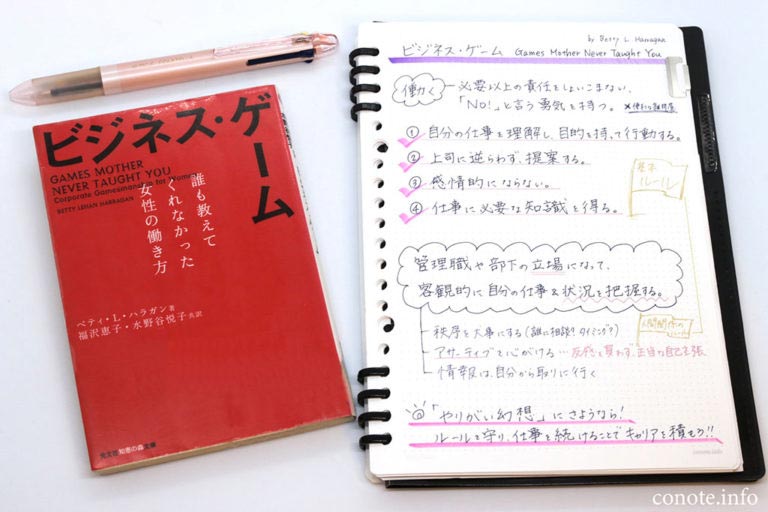 ビジネス・ゲーム
GAMES MOTHER
NEVER TAUGHT YOU
Corporate Gamesmanship for Women
BETTY LEHAN HARRAGAN
誰も教えて
くれなかった
女性の働き方
ベティ・L・ハラガン 著
福沢恵子・水野谷悦子 共訳
光文社 知恵の森文庫
by Betty L Harragan
ビジネス・ゲーム Games Mother Never Taught You
働く 必要以上の責任をしょいこまない、
「No!」と言う勇気を持つ。
① 自分の仕事を理解し、目的を持って行動する。
② 上司に逆らわず、提案する。
③ 感情的にならない。
④ 仕事に必要な知識を得る。
基本
ルール
管理職や部下の立場になって、
客観的に自分の仕事&状況を把握する。
人間関係の
ルール
秩序を大事にする(誰に相談?タイミング?)
アサーティブを心がける…反感を買わず、正当な自己主張
情報は、自分から取りに行く
「やりがい幻想」にさようなら!
ルールを守り、仕事を続けることでキャリアを積もう!!
conote.info
conote.info